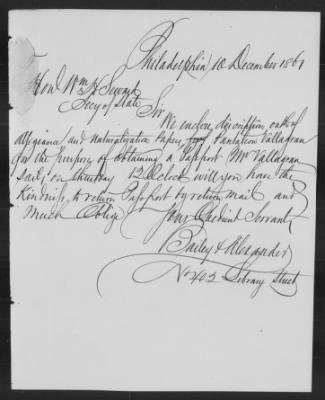 Philadelphia 10 December 1861
Honl Wm H Seward
Secy of State Sir
We enclose discription oath of
Allegiance and Naturalization Papers for Pantaleon Vallagran
for the purpose of obtaining a Passport Mr Vallagran
sails on Saturday 12 Oclock will you have the
Kindniss to return Passport by return mail and
much Oblige Your Obedient Servants
Bailey & Alexander
No 402 Library Street